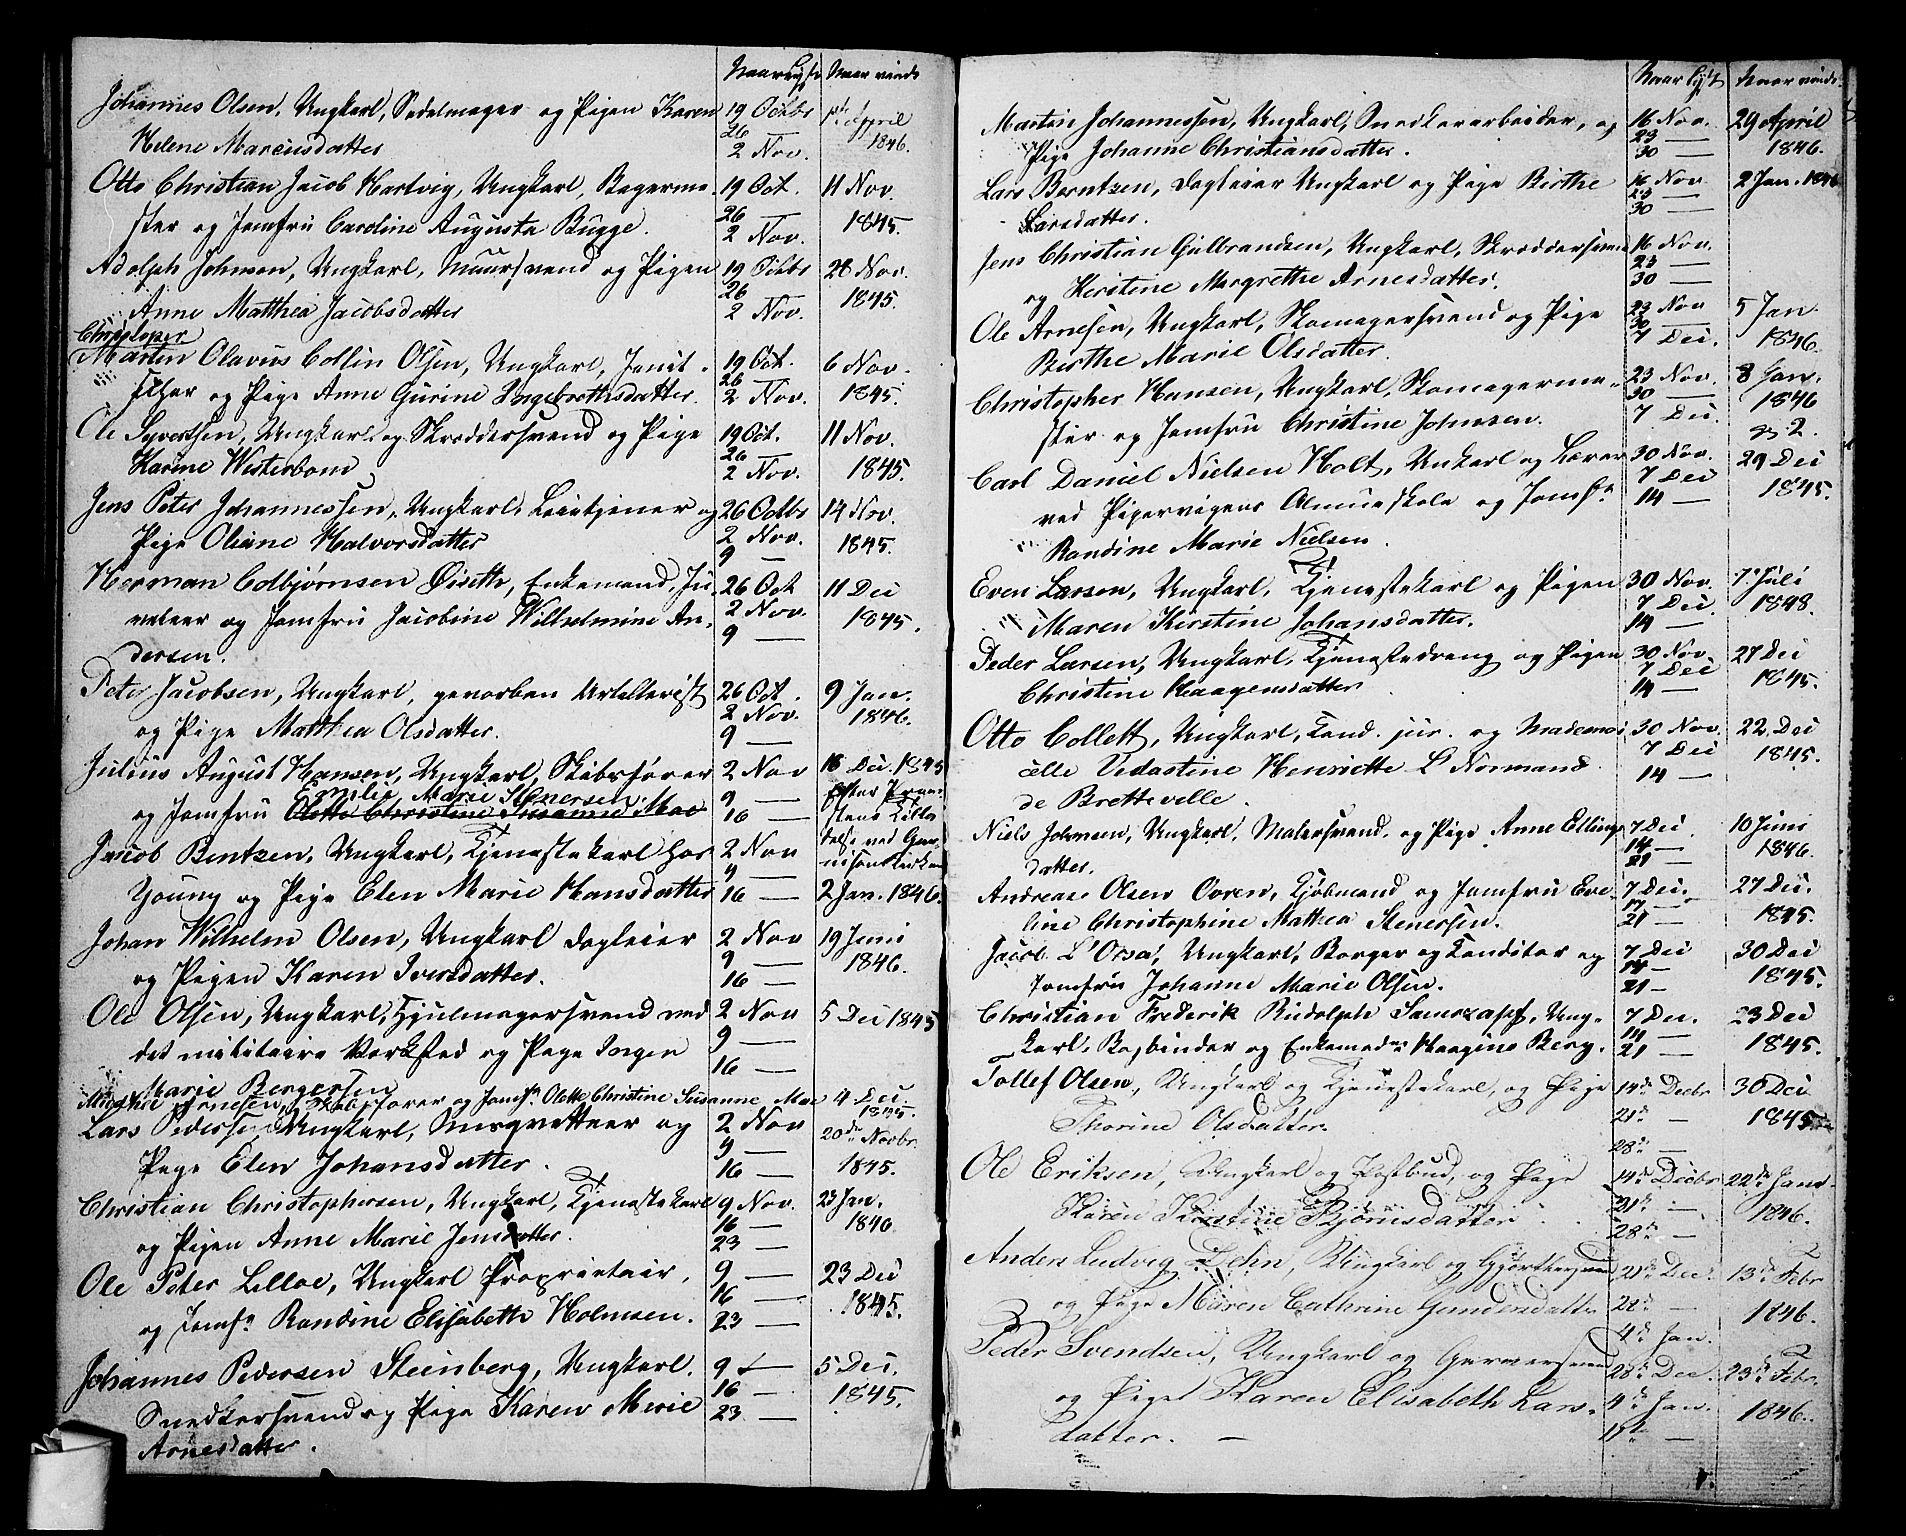 Naar lyst Naar viede
Johannes Olsen, Ungkarl, Sadelmager og Pigen Karen 19 Octbr 1st April
Helene Marcusdatter 26 — 1846.
2 Nov.
Otto Christian Jacob Hartvig, Ungkarl, Bagerme- 19 Oct. 11 Nov.
ster og Jomfru Caroline Augusta Bugge. 26 — 1845.
2 Nov.
Adolph Johnson, Ungkarl, Muursvend og Pigen 19 Octbr 28 Nov.
Anne Matthea Jacobsdatter 26 1845.
2 Nov.
Christopher
Martin Olavius Collin Olsen, Ungkarl, 19 Oct. 6 Nov.
og Pige Anne Gurine Ingebrethsdatter. 26 — 1845.
2 Nov.
Ole Syvertsen, Ungkarl og Skræddersvend og Pige 19 Oct. 11 Nov.
Karine Westerbom 26 — 1845.
2 Nov.
Jens Peter Johannessen, Ungkarl, Leietjener og 26 Octbr 14 Nov.
Pige Oliane Halvorsdatter 2 Nov. 1845.
9 —
Herman Colbjørnsen Øiseth, Enkemand, Ju- 26 Oct 11 Dec
veleer og Jomfru Jacobine Wilhelmine An- 2 Nov. 1845.
dersen. 9 —
Peter Jacobsen, Ungkarl, gevorben Artillerist 26 Oct. 9 Jan.
og Pige Matthea Olsdatter. 2 Nov. 1846.
9 —
Julius August Hansen, Ungkarl, Skibsfører 2 Nov 16 Dec. 1845
Emilie Marie Stenersen 9 —
og Jomfru Olette Christine Susanne Moe 16 —
Jacob Bentzen, Ungkarl, Tjenestekarl hos 2 Nov
9 —
Young og Pige Elen Marie Hansdatter 16 — 2 Jan. 1846.
Johan Wilhelm Olsen, Ungkarl Dagleier 2 Nov 19 Juni
og Pigen Karen Iversdatter. 9 — 1846.
16 —
Ole Olsen, Ungkarl, Hjulmagersvend ved 2 Nov 5 Dec 1845
det militaire Værksted og Pige Inger 9 —
Marie Bergersen 16 —
Arnesen, Skibsfører og Jomfr. Olette Christine Susanne Moe 4 Dec. 1845.
Lars Pedersen, Ungkarl, og 2 Nov 20de Novbr
Pige Elen Johansdatter. 9 — 1845.
16 —
Christian Christophersen, Ungkarl, Tjenestekarl 9 Nov. 23 Jan.
og Pigen Anne Marie Jensdatter. 16 — 1846
23 —
Ole Peter Lilloe, Ungkarl Proprietair, 9 — 23 Dec
og Jomfr. Randine Elisabeth Holmsen. 16 — 1845.
23 —
Johannes Pedersen Steinberg, Ungkarl. 9 — 5 Dec.
Snedkersvend og Pige Karen Marie 16 — 1845.
Arnesdatter. 23 —
Naar lyst Naar viede
Martin Johannessen, Ungkarl, Snedkerarbeider, og 16 Nov. 29 April
Pige Johanne Christiansdatter. 23 — 1846.
30 —
Lars Berntzen, Dagleier Ungkarl og Pige Birthe 16 Nov 2 Jan. 1846
Larsdatter. 23 —
30 —
Jens Christian Gulbrandsen, Ungkarl, Skræddersvend 16 Nov.
og Kirstine Margrethe Arnesdatter. 23 —
30 —
Ole Arnesen, Ungkarl, Skomagersvend og Pige 23 Nov 5 Jan.
Birthe Marie Olsdatter. 30 — 1846.
7 Dec.
Christopher Hansen, Ungkarl, Skomagerme- 23 Nov. 8 Jan.
ster og Jomfru Christine Johnsen. 30 — 1846
7 Dec
Carl Daniel Nielsen Holt, Unkarl og Lærer 30 Nov. 29 Dec
ved Pipervigens Almueskole og Jomfr. 7 Dec 1845.
Randine Marie Nielsen. 14 —
Even Larsen, Ungkarl, Tjenestekarl og Pigen 30 Nov. 7. Juli
Maren Kirstine Johansdatter. 7 Dec. 1848.
14 —
Peder Larsen, Ungkarl, Tjenestedreng og Pigen 30 Nov. 27 Dec
Christine Haagensdatter 7 Dec 1845.
14 —
Otto Collett, Ungkarl, Cand. jur. og Mademoi- 30 Nov. 22 Dec
selle Vedastine Henriette L'Normand 7 Dec 1845.
de Bretteville. 14 —
Niels Johnsen, Ungkarl, Malersvend, og Pige Anne Ellings- 7 Dec. 10 Juni
datter. 14 — 1846.
21 —
Andreas Olsen Ovren, Kjøbmand og Jomfru Eve- 7 Dec. 27 Dec.
line Christophine Mathea Stenersen. 14 — 1845.
21 —
Jacob L'Orsa, Ungkarl, Borger og Conditor og 7 Dec 30 Dec
Jomfru Johanne Marie Olsen. 14 — 1845.
21 —
Christian Frederik Rudolph Samszapf, Ung- 7 Dec. 23 Dec
karl, Bogbinder og Haagine Berg. 14 — 1845.
21 —
Tollef Olsen, Ungkarl og Tjenestekarl, og Pige 14de Decbr 30 Dec
Thorine Olsdatter. 21de — 1845
28de —
Ole Eriksen, Ungkarl og Postbud, og Pige 14de Decbr 22de Janr
Karen Kirstine Bjørnsdatter. 21de — 1846.
28de —
Anders Ludvig Dehn, Ungkarl og Gjørtlersvend 21de Dec. 13de Febr
og Pige Maren Cathrine Gundersdatter 28de — 1846.
4de Jan.
Peder Svendsen, Ungkarl og Garversvend 28de Dec. 23de Febr.
og Pige Karen Elisabeth Lars- 4de Jan. 1846.
datter. — 11te —